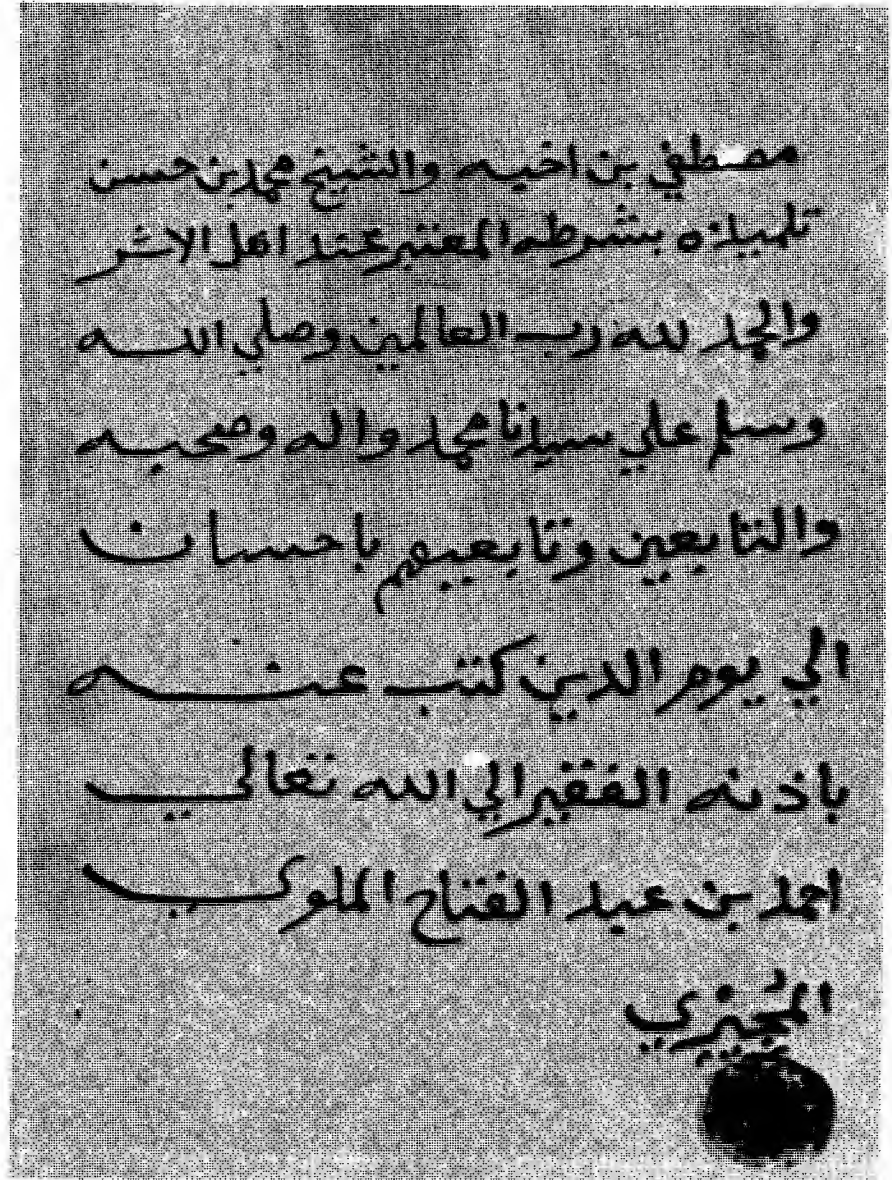 مصطفي بن اخيه والشيخ محمد بن حسن
تلميذه بشرطه المعتبر عند اهل الاثر
والحمد لله رب العالمين وصلي الله
وسلم علي سيدنا محمد واله وصحبه
والتابعين وتابعيهم باحسان
الي يوم الدين كتب عنه
باذنه الفقير الي الله تعالي
احمد بن عبد الفتاح الملوي
المُجيزي